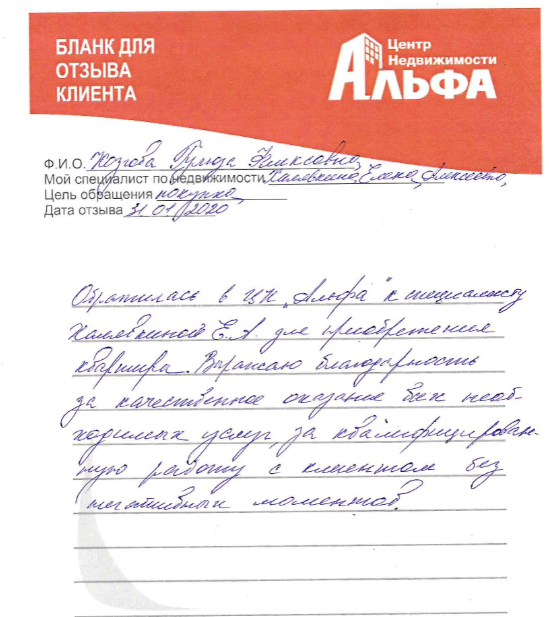 БЛАНК ДЛЯ
ОТЗЫВА
КЛИЕНТА
Центр
Недвижимости
АЛЬФА
Ф.И.О.
Мой специалист по недвижимости Халявкина Елена Алексеевна,
Цель обращения покупка
Дата отзыва 31 01 2020
Обратилась в ЦН „Альфа" к специалисту
Халявкиной Е.А. для приобретения
квартиры. Выражаю благодарность
за качественное оказание всех необ-
ходимых услуг, за квалифицирован-
ную работу с клиентом без
негативных моментов.